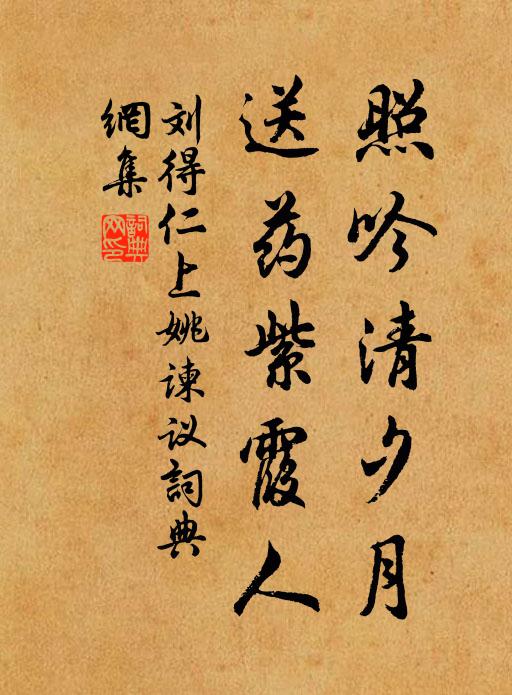 照吟清夕月
送药紫霞人
刘得仁上姚谏议詞典
網集
詞典
网印